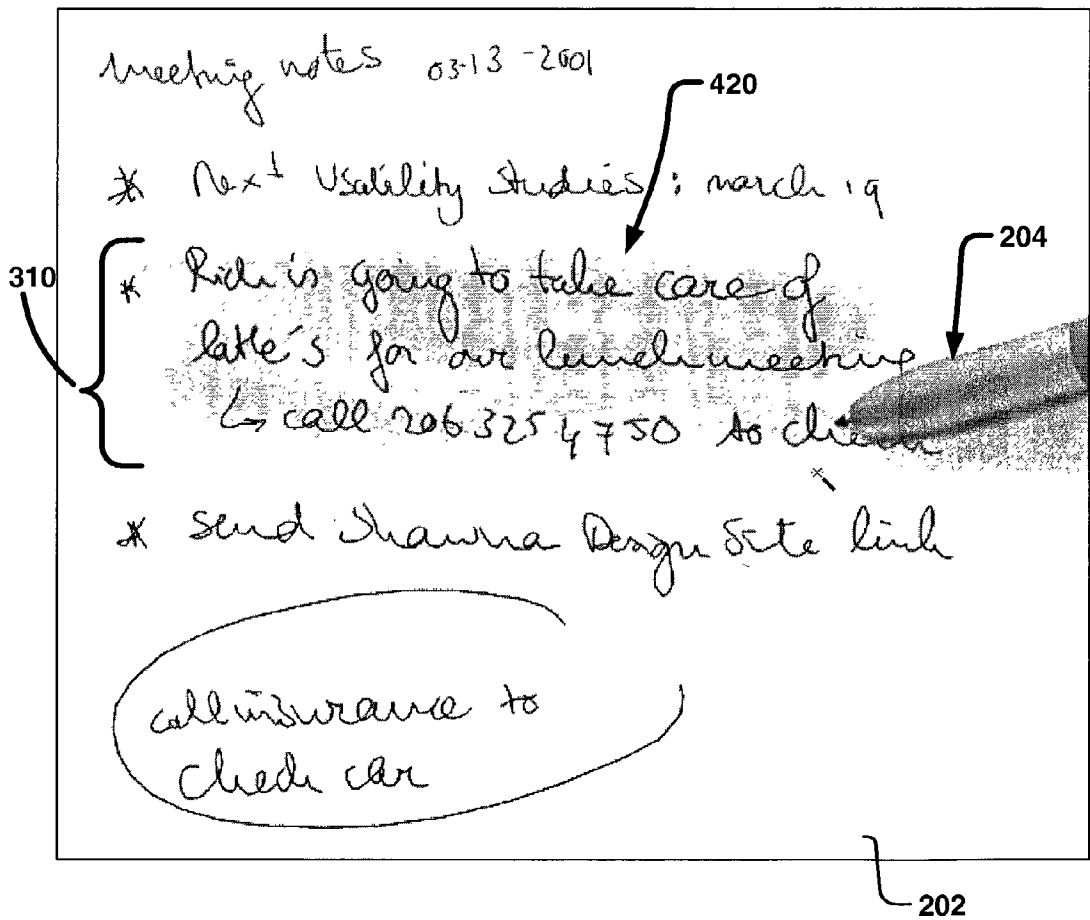 meeting notes 03-13-2001
420
* Next Usability Studies : march 19
204
310
* Rich is going to take care of
latte's for our lunch meeting
↳ call 206 325 4750 to check
* Send Shawna Design Site link
call insurance to
check car
202